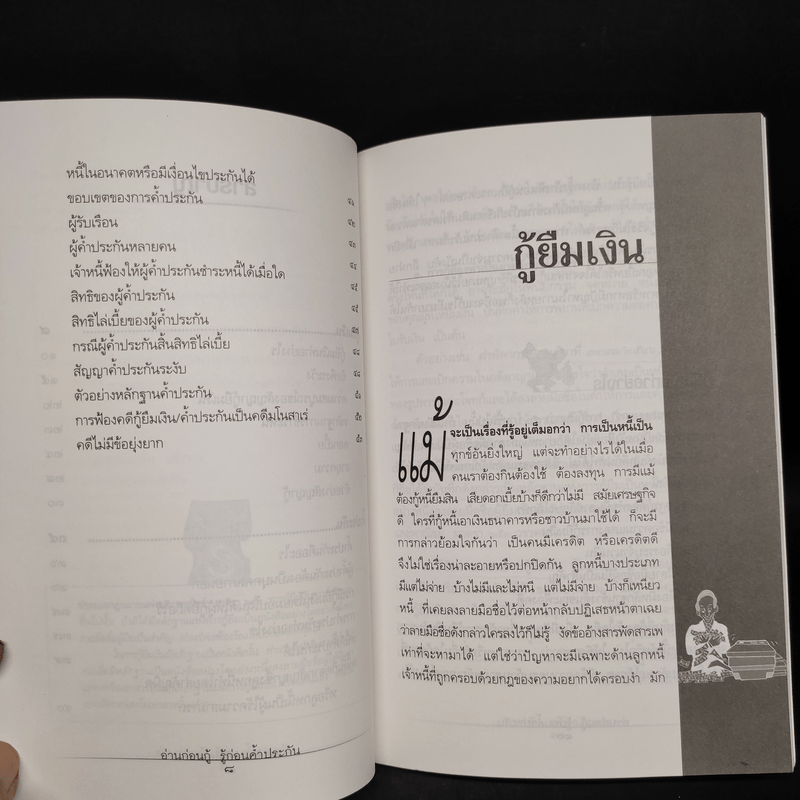 หนี้ในอนาคตหรือมีเงื่อนไขประกันได้
ขอบเขตของการค้ำประกัน ๔๑
ผู้รับเรือน ๔๒
ผู้ค้ำประกันหลายคน ๔๓
เจ้าหนี้ฟ้องให้ผู้ค้ำประกันชำระหนี้ได้เมื่อใด ๔๔
สิทธิของผู้ค้ำประกัน ๔๕
สิทธิไล่เบี้ยของผู้ค้ำประกัน ๔๕
กรณีผู้ค้ำประกันสิ้นสิทธิไล่เบี้ย ๔๗
สัญญาค้ำประกันระงับ ๔๘
ตัวอย่างหลักฐานค้ำประกัน ๔๘
การฟ้องคดีกู้ยืมเงิน/ค้ำประกันเป็นคดีมโนสาเร่ ๕๑
คดีไม่มีข้อยุ่งยาก
อ่านก่อนกู้ รู้ก่อนค้ำประกัน
๘
กู้ยืมเงิน
แม้จะเป็นเรื่องที่รู้อยู่เต็มอกว่า การเป็นหนี้เป็น
ทุกข์อันยิ่งใหญ่ แต่จะทำอย่างไรได้ในเมื่อ
คนเราต้องกินต้องใช้ ต้องลงทุน การมีแม้
ต้องกู้หนี้ยืมสิน เสียดอกเบี้ยบ้างก็ดีกว่าไม่มี สมัยเศรษฐกิจ
ดี ใครที่กู้หนี้เอาเงินธนาคารหรือชาวบ้านมาใช้ได้ ก็จะมี
การกล่าวย้อมใจกันว่า เป็นคนมีเครดิต หรือเครดิตดี
จึงไม่ใช่เรื่องน่าละอายหรือปกปิดกัน ลูกหนี้บางประเภท
มีแต่ไม่จ่าย บ้างไม่มีและไม่หนี แต่ไม่มีจ่าย บ้างก็เหนียว
หนี้ ที่เคยลงลายมือชื่อไว้ต่อหน้ากลับปฏิเสธหน้าตาเฉย
ว่าลายมือชื่อดังกล่าวใครลงไว้ก็ไม่รู้ งัดข้ออ้างสารพัดสารเพ
เท่าที่จะหามาได้ แต่ใช่ว่าปัญหาจะมีเฉพาะด้านลูกหนี้
เจ้าหนี้ที่ถูกครอบด้วยกฎของความอยากได้ครอบงำ มัก